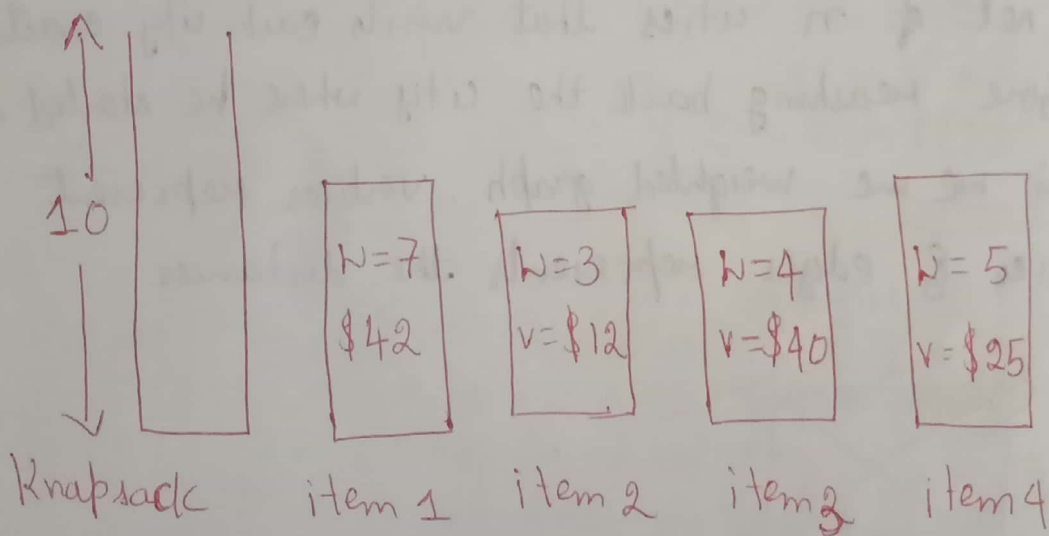 10
W=7.
$42
W=3
V=$12
W=4
V=$40
W=5
V=$25
Knapsack
item 1
item 2
item 3
item 4